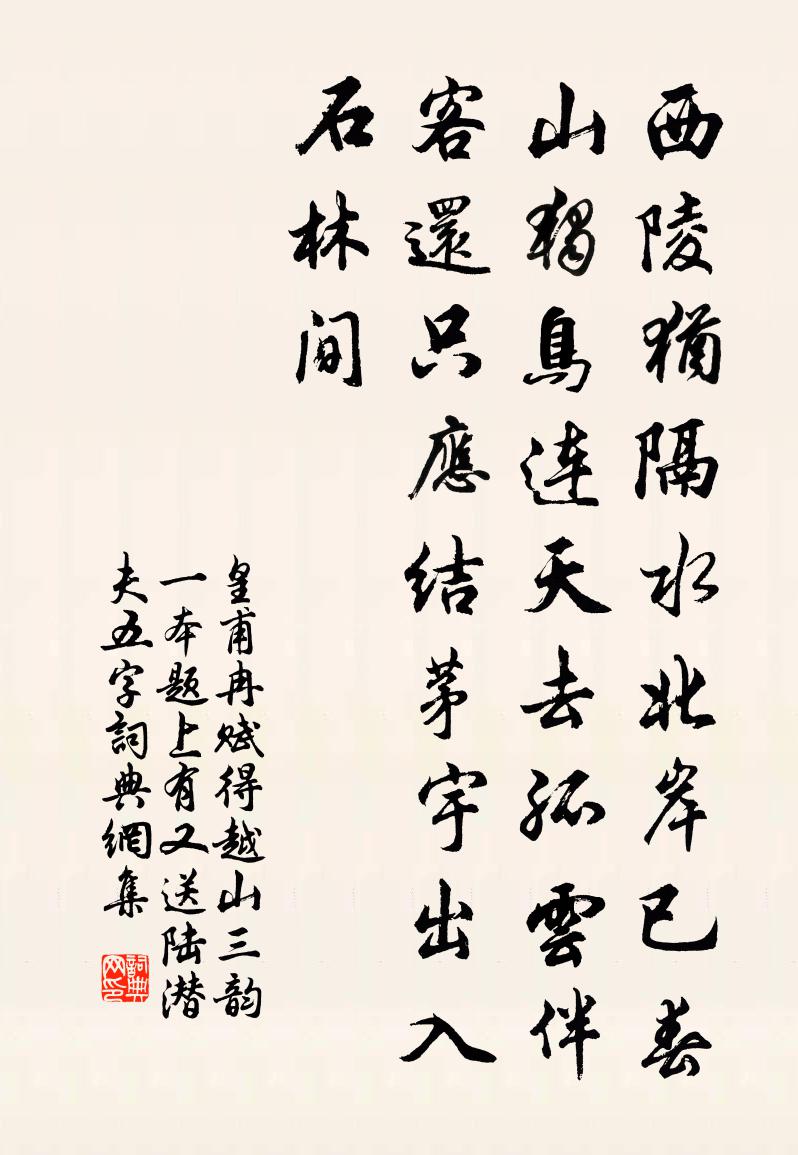 西陵猶隔水北岸已春
山獨鳥連天去孤雲伴
客還只應結茅宇出入
石林間
皇甫冉赋得越山三韵
一本题上有又送陆潜
夫五字詞典網集
詞典网印